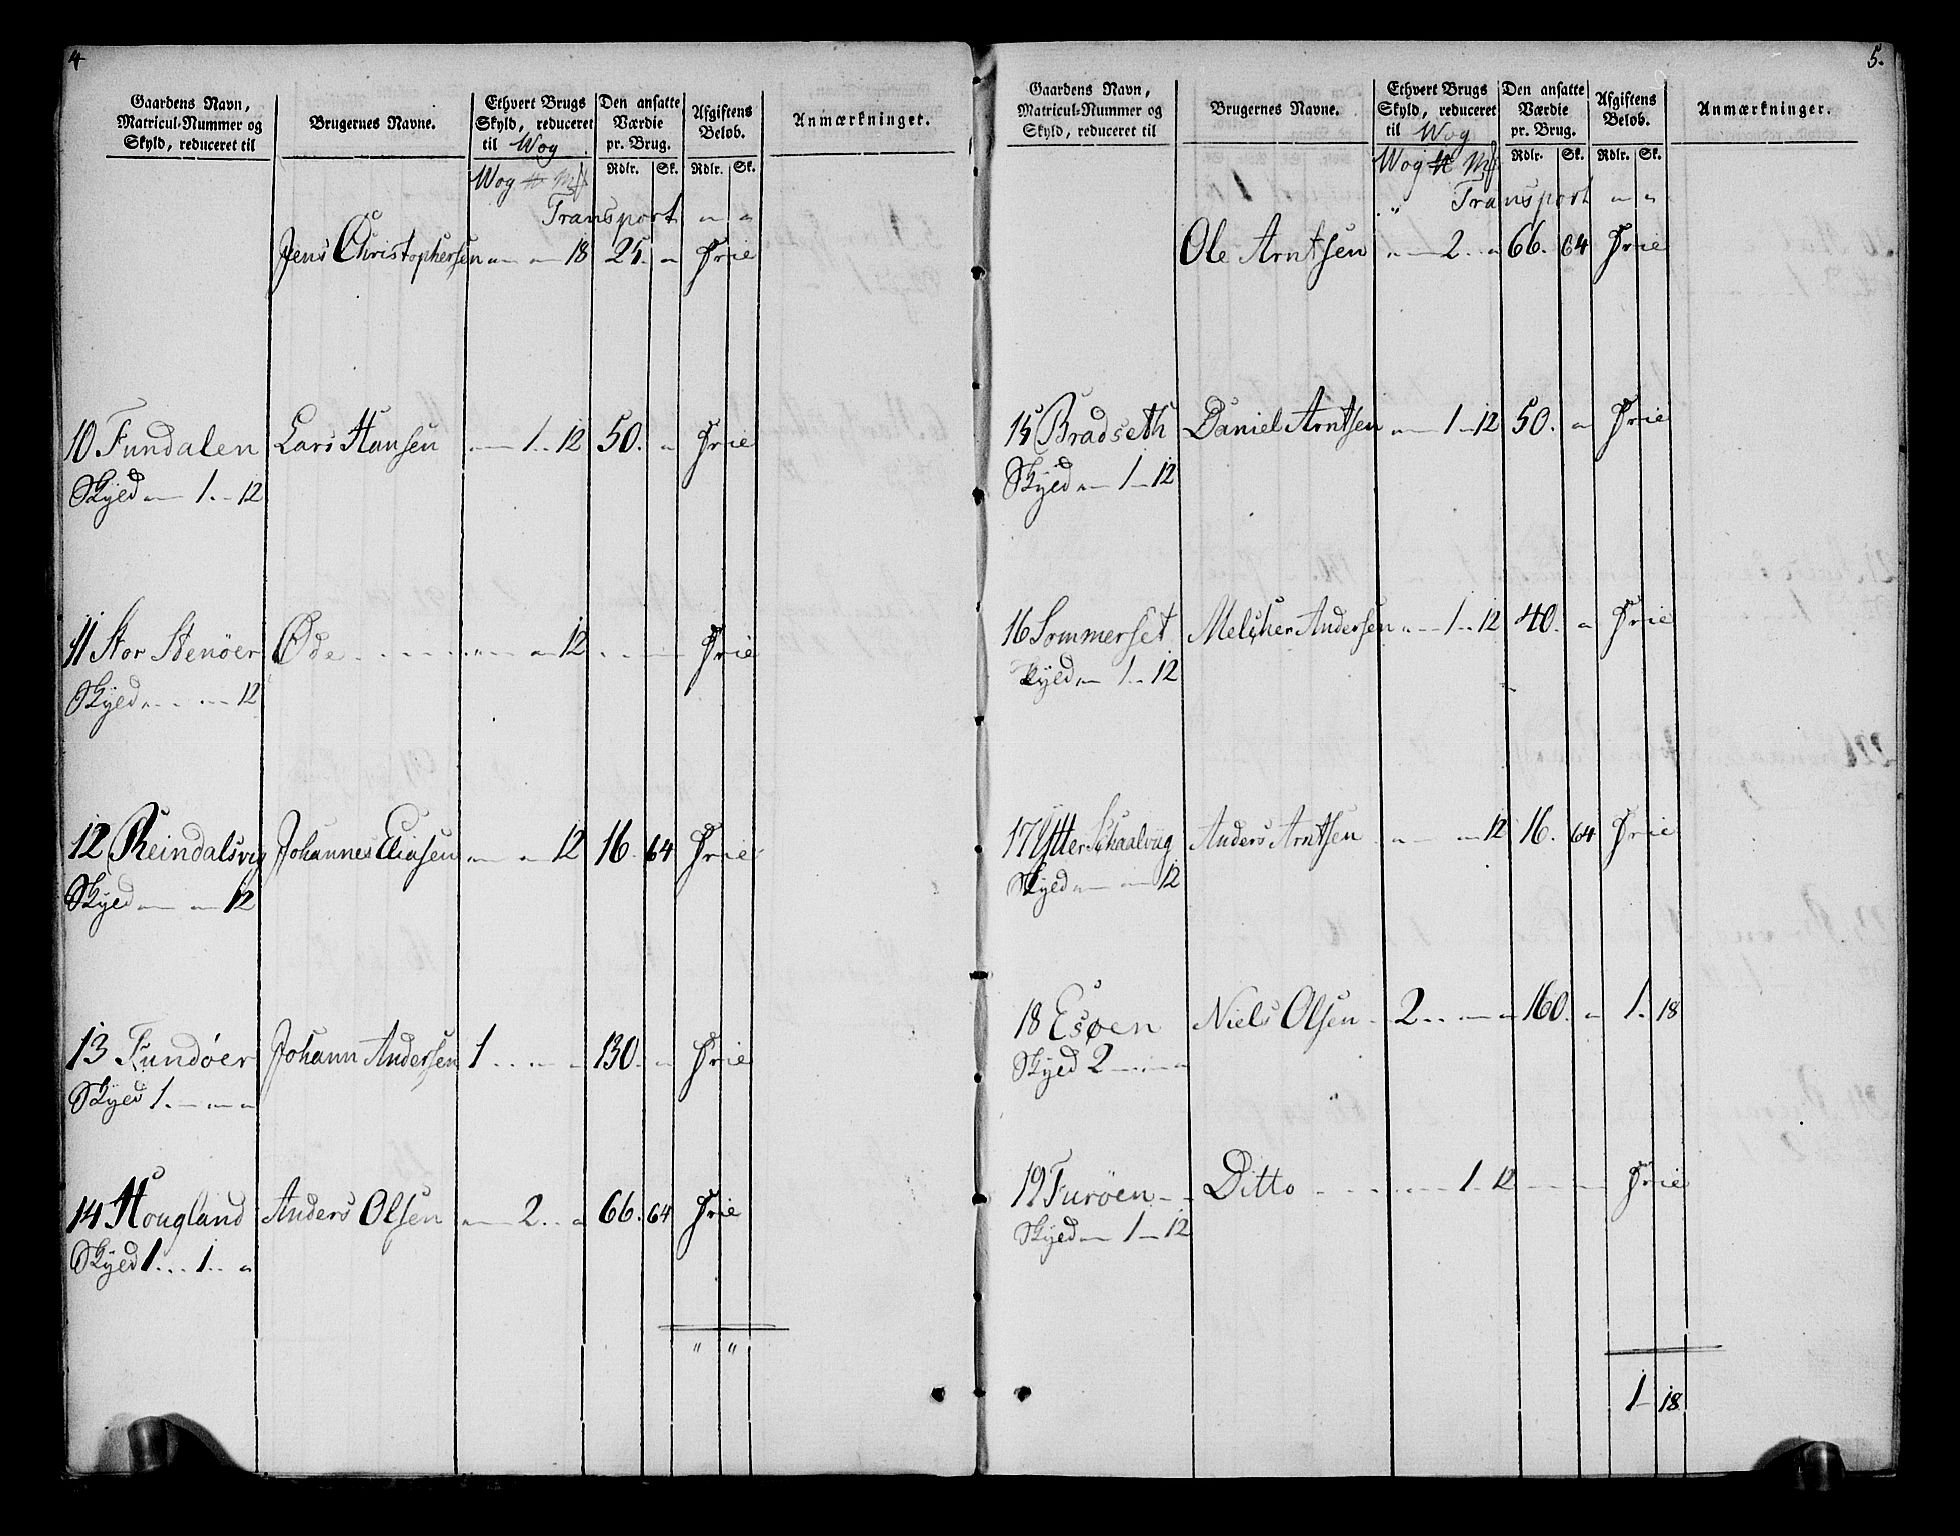 4
Gaardens Navn, Matricul-Nummer og Skyld, reduceret til
Brugernes Navne.
Ethvert Brugs Skyld, reduceret til Wog
Den ansatte Værdie pr. Brug.
Afgiftens Beløb.
Anmærkninger.
Wog ℔ Mk Rdlr. Sk. Rdlr. Sk.
Transport " "
Jens Christophersen " " 18 25. " Frie
10 Fundalen Lars Hansen " 1 " 12 50. " Frie
Skyld " 1 " 12
11 Stor Stenöer Öde " " 12 Frie
Skyld " " 12
12 Reindalsvig Johannes Eliasen " " 12 16. 64 Frie
Skyld " " 12
13 Fundöer Johann Andersen 1 " " 130. " Frie
Skyld 1. " "
14 Hougland Anders Olsen " 2 " 66. 64 Frie
Skyld 1 " 1 "
" "
5.
Gaardens Navn, Matricul-Nummer og Skyld, reduceret til
Brugernes Navne.
Ethvert Brugs Skyld, reduceret til Wog
Den ansatte Værdie pr. Brug.
Afgiftens Beløb.
Anmærkninger.
Wog ℔ Mk Rdlr. Sk. Rdlr. Sk.
" Transport " "
Ole Arntsen " 2 " 66. 64 Frie
15 Bradseth Daniel Arntsen " 1 " 12 50. " Frie
Skyld " 1 " 12
16 Sommerset Melcher Andersen " 1 " 12 40. " Frie
Skyld " 1 " 12
17 Ytter Skaalvig Anders Arntsen " " 12 16. 64 Frie
Skyld " " 12
18 Esøen Niels Olsen 2 " " 160. " 1. 18
Skyld 2 " "
19 Furöen Ditto 1 " 12 Frie
Skyld " 1 " 12
1 18